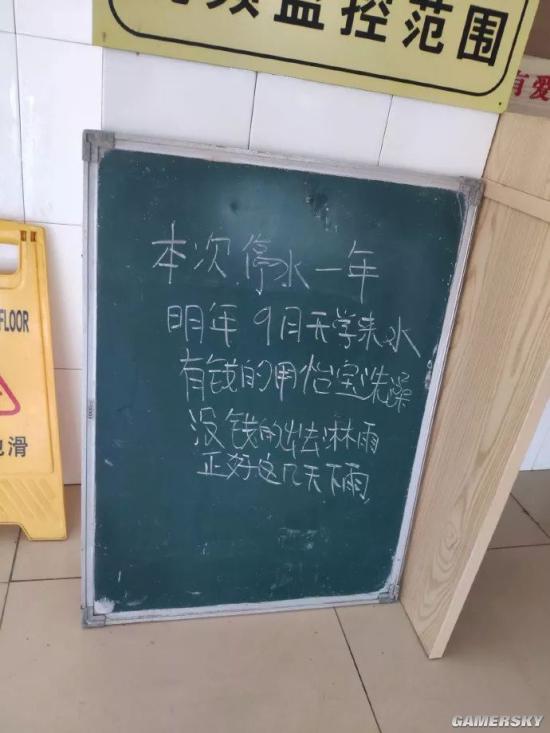 视频监控范围
有爱
FLOOR
地滑
本次停水一年
明年9月天学来水
有钱的用怡宝洗澡
没钱的出去淋雨
正好这几天下雨
GAMERSKY